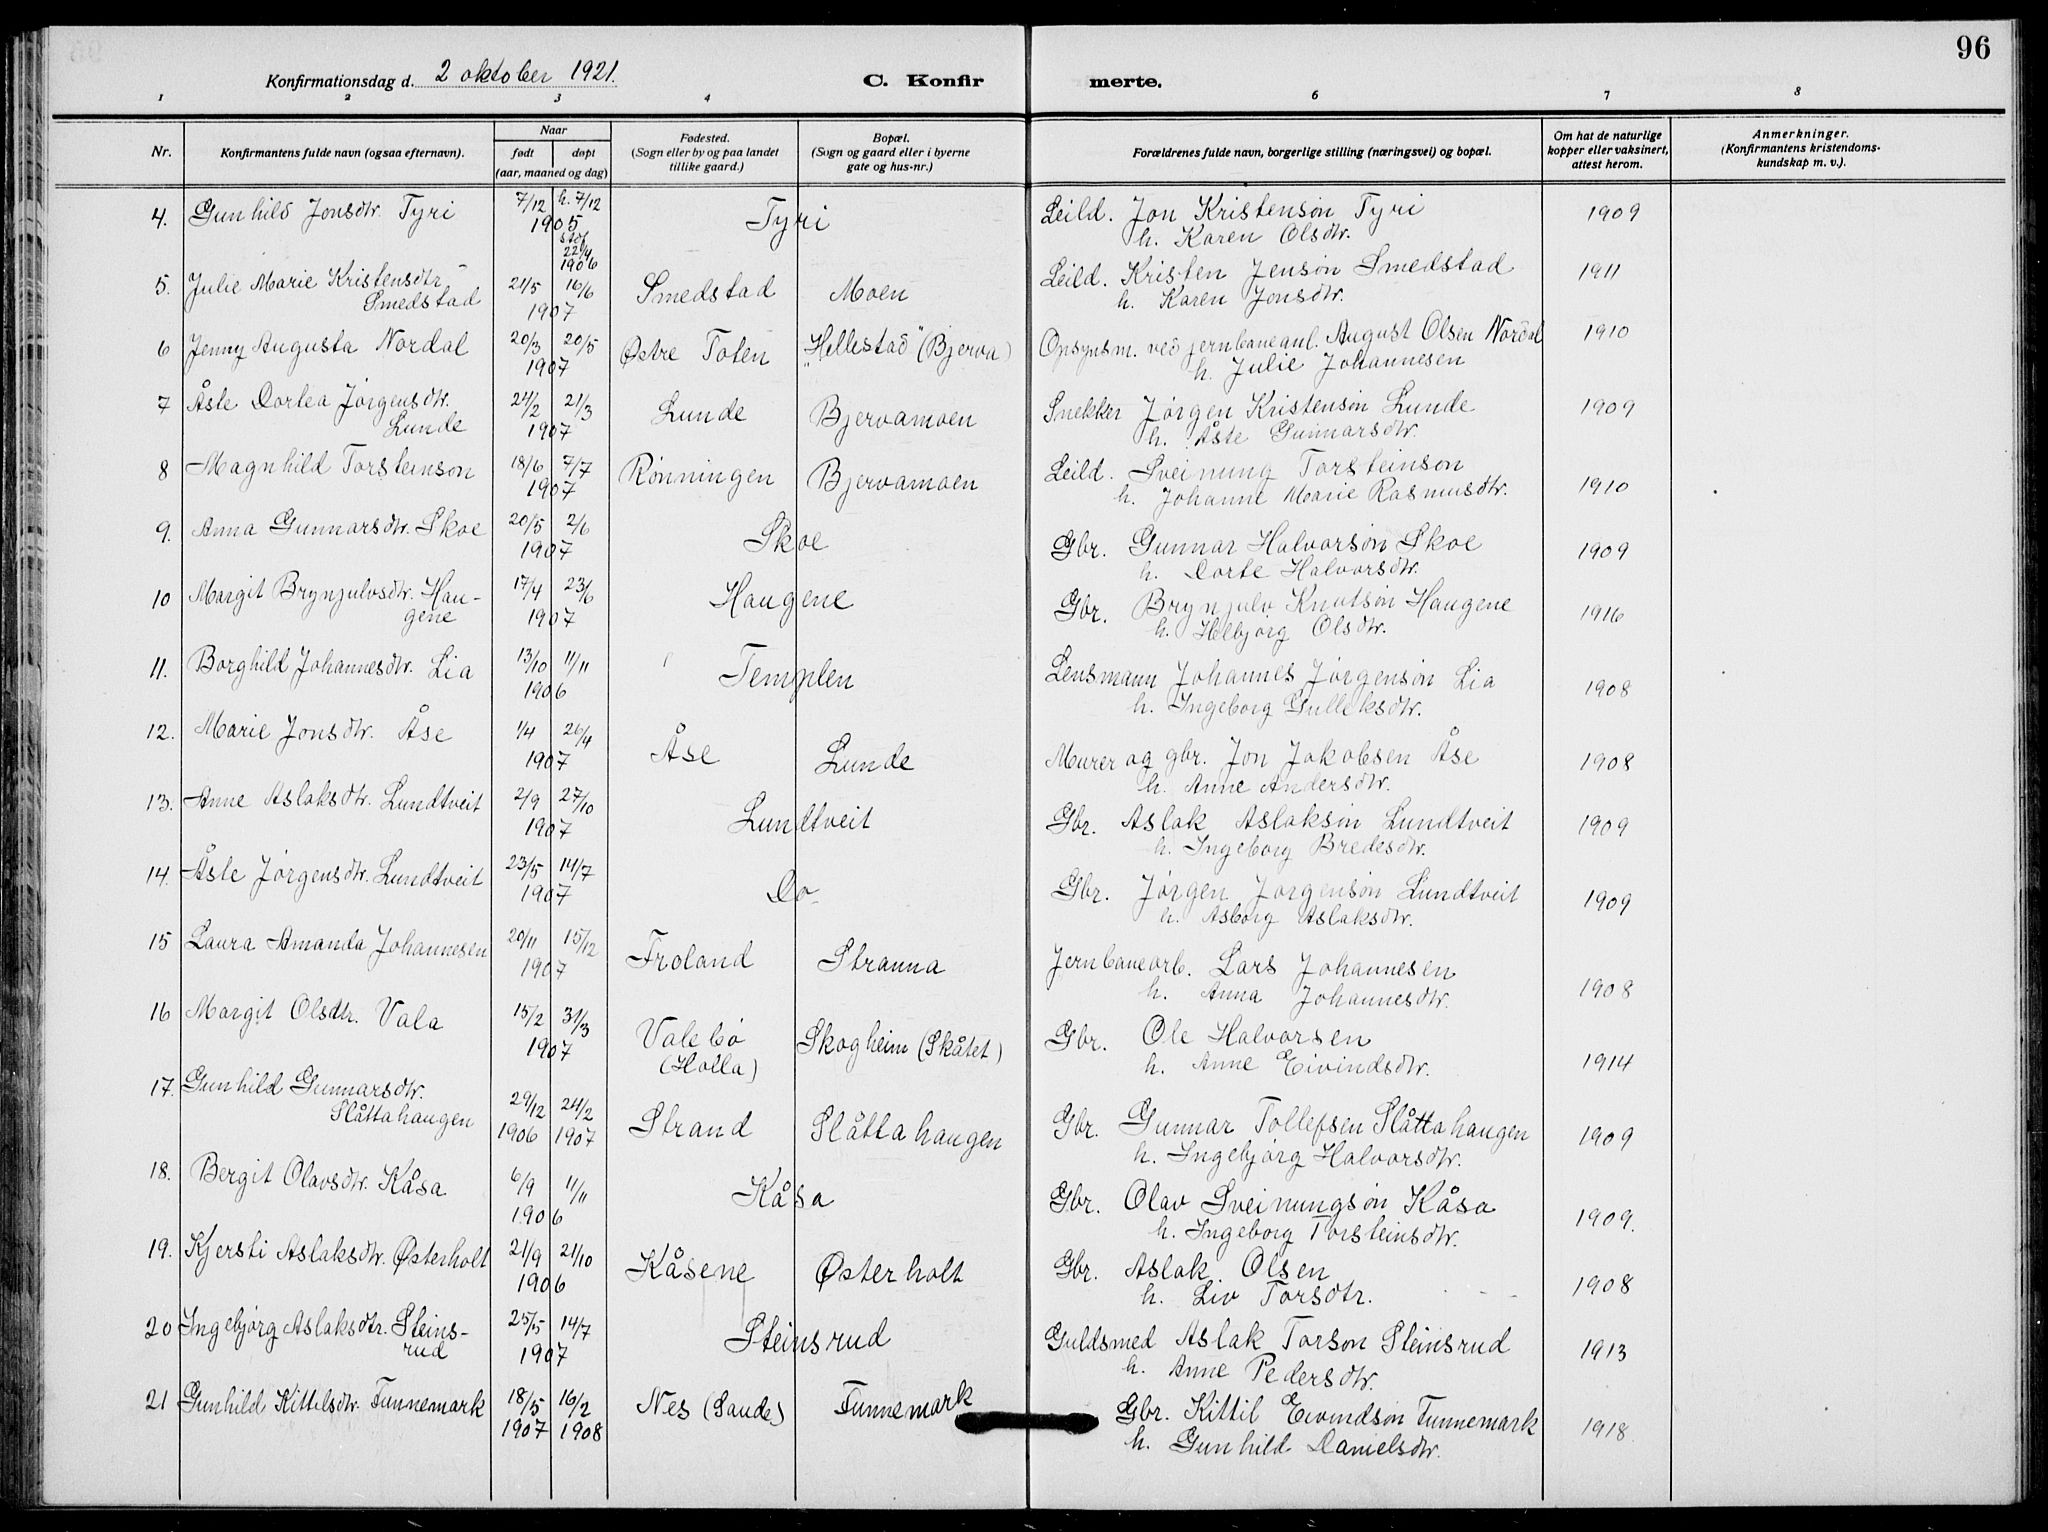 96
Konfirmationsdag d. 2 oktober 1921.
C. Konfirmerte.
1 2 3 4 6 7 8
Nr.
Konfirmantens fulde navn (ogsaa efternavn).
Naar
født døpt
(aar, maaned og dag)
Fødested.
(Sogn eller by og paa landet
tillike gaard.)
Bopæl.
(Sogn og gaard eller i byerne
gate og hus-nr.)
Forældrenes fulde navn, borgerlige stilling (næringsvei) og bopæl.
Om hat de naturlige
kopper eller vaksinert,
attest herom.
Anmerkninger.
(Konfirmantens kristendoms-
kundskap m. v.).
4. Gunhild Jonsdtr. Tyri 7/12 h. 7/12 Tyri Leild. Jon Kristensøn Tyri 1909
1905 stdf. 22/4 1906 h. Karen Olsdtr.
5. Julie Marie Kristensdtr 21/5 16/6 Smedstad Moen Leild. Kristen Jensøn Smedstad 1911
Smedstad 1907 h. Karen Jonsdtr.
6 Jenny Augusta Nordal 20/3 20/5 Østre Toten "Hellestad" (Bjerva) Opsynsm. ved jernbaneanl. August Olsen Nordal 1910
1907 h. Julie Johannesen
7 Åsle Dortea Jørgensdtr. 24/2 21/3 Lunde Bjervamoen Snekker Jørgen Kristensøn Lunde 1909
Lunde 1907 h. Åste Gunnarsdtr.
8 Magnhild Torsteinson 18/6 7/7 Rønningen Bjervamoen Leild. Sveinung Torsteinson 1910
1907 h. Johanne Marie Rasmusdtr.
9. Anna Gunnarsdtr. Skoe 20/5 2/6 Skoe Gbr. Gunnar Halvorsøn Skoe 1909
1907 h. Dorte Halvorsdtr.
10 Margit Brynjulvsdtr. Hau- 17/4 23/6 Haugene Gbr. Brynjulv Knutsøn Haugene 1916
gene 1907 h. Helbjørg Olsdtr.
11. Borghild Johannesdtr. Lia 13/10 11/11 Templen Lensmann Johannes Jørgensøn Lia 1908
1906 h. Ingeborg Gulleksdtr.
12. Marie Jonsdtr. Åse 1/4 26/4 Åse Lunde Murer og gbr. Jon Jakobsen Åse 1908
1907 h. Anne Andersdtr.
13. Anne Aslaksdtr. Lundtveit 2/9 27/10 Lundtveit Gbr. Aslak Aslaksøn Lundtveit 1909
1907 h. Ingeborg Bredesdtr.
14. Åsle Jørgensdtr. Lundtveit 23/5 14/7 Do. Gbr. Jørgen Jørgensøn Lundtveit 1909
1907 h. Asborg Aslaksdtr.
15 Laura Amanda Johannesen 20/11 15/12 Froland Stranna Jernbanearb. Lars Johannesen 1908
1907 h. Anna Johannesdtr.
16 Margit Olsdtr. Vala 15/2 31/3 Valebø Skogheim (Skåtet) Gbr. Ole Halvorsen 1914
1907 (Holla) h. Anne Eivindsdtr.
17. Gunhild Gunnarsdtr. 29/12 24/2 Strand Slåttahaugen Gbr. Gunnar Tollefsen Slåttahaugen 1909
Slåttahaugen 1906 1907 h. Ingebjørg Halvorsdtr.
18. Bergit Olavsdtr. Kåsa 6/9 11/11 Kåsa Gbr. Olav Sveinungsøn Kåsa 1909.
1906 h. Ingeborg Torsteinsdtr.
19. Kjersti Aslaksdtr. Østerholt 21/9 21/10 Kåsene Østerholt Gbr. Aslak Olsen 1908
1906 h. Liv Torsdtr.
20 Ingebjørg Aslaksdtr. Steins- 25/5 14/7 Steinsrud Guldsmed Aslak Torson Steinsrud 1913
rud 1907 h. Anne Pedersdtr.
21 Gunhild Kittelsdtr. Tunnemark 18/5 16/2 Nes (Saude) Tunnemark Gbr. Kittil Eivindsøn Tunnemark 1918
1907 1908 h. Gunhild Danielsdtr.